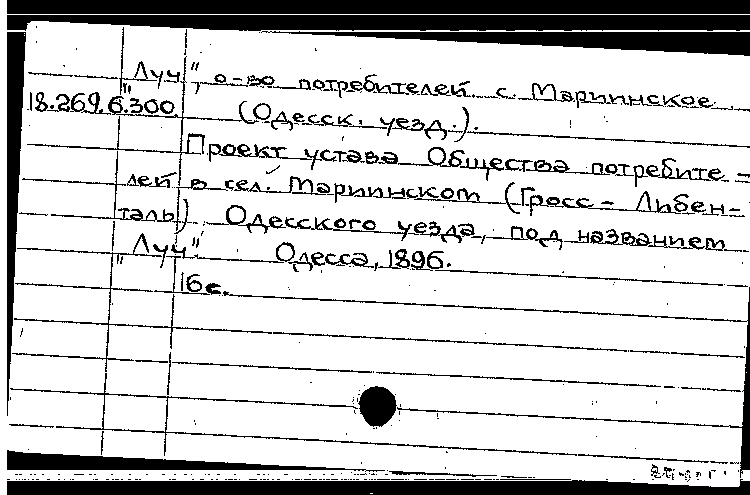 „Луч“, о-во потребителей с. Мариинское
18.269.6.300. (Одесск. уезд.).
Проект устава Общества потребите-
лей в сел. Мариинском (Гросс-Либен-
таль) Одесского уезда, под названием
„Луч“. Одесса, 1896.
16с.